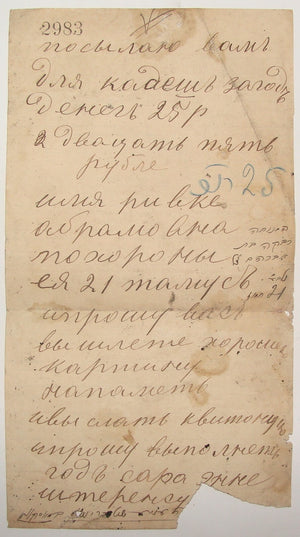 2983
посылаю вамъ
для кадешъ загодъ
денегъ 25 р
двацать пять
рубле
25
имя ривке
абрамовна
похороны
ея 21 тамусъ
ипрошу васъ
вышлете хорошу
картину
напаметь
ивыслать квитонцию
ипрошу выполнеть
годъ сара энне
штеренсу